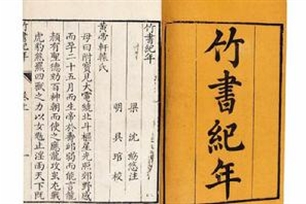 竹書紀年
竹書紀年
梁沈約注
明吳琯校
黃帝軒轅氏
母曰附寶見大電繞北斗樞星光照郊野感
而孕二十五月而生帝於壽邱弱而能言龍
顏有聖德劾百神朝而使之應龍攻蚩尤戰
虎豹熊羆四獸之力以女魃止淫雨天下既
竹書紀年